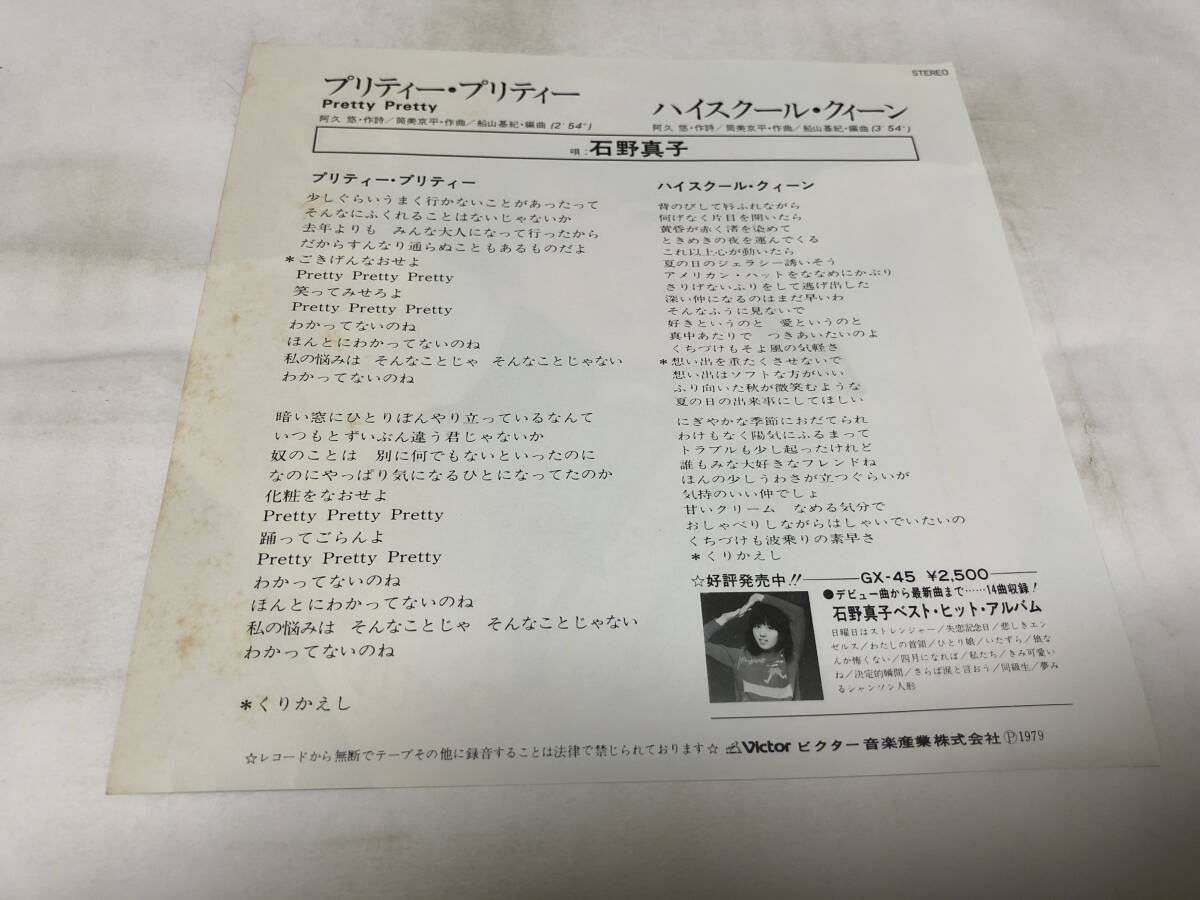 STEREO
プリティー・プリティー
Pretty Pretty
阿久 悠・作詩/筒美京平・作曲/船山基紀・編曲(2′54″)
ハイスクール・クィーン
阿久 悠・作詩/筒美京平・作曲/船山基紀・編曲(3′54″)
唄:石野真子
プリティー・プリティー
少しぐらいうまく行かないことがあったって
そんなにふくれることはないじゃないか
去年よりも みんな大人になって行ったから
だからすんなり通らぬこともあるものだよ
*ごきげんなおせよ
Pretty Pretty Pretty
笑ってみせろよ
Pretty Pretty Pretty
わかってないのね
ほんとにわかってないのね
私の悩みは そんなことじゃ そんなことじゃない
わかってないのね
暗い窓にひとりぼんやり立っているなんて
いつもとずいぶん違う君じゃないか
奴のことは 別に何でもないといったのに
なのにやっぱり気になるひとになってたのか
化粧をなおせよ
Pretty Pretty Pretty
踊ってごらんよ
Pretty Pretty Pretty
わかってないのね
ほんとにわかってないのね
私の悩みは そんなことじゃ そんなことじゃない
わかってないのね
*くりかえし
ハイスクール・クィーン
背のびして唇ふれながら
何げなく片目を開いたら
黄昏が赤く渚を染めて
ときめきの夜を運んでくる
これ以上心が動いたら
夏の日のジェラシー誘いそう
アメリカン・ハットをななめにかぶり
さりげないふりをして逃げ出した
深い仲になるのはまだ早いわ
そんなふうに見ないで
好きというのと 愛というのと
真中あたりで つきあいたいのよ
くちづけもそよ風の気軽さ
*想い出を重たくさせないで
想い出はソフトな方がいい
ふり向いた秋が微笑むような
夏の日の出来事にしてほしい
にぎやかな季節におだてられ
わけもなく陽気にふるまって
トラブルも少し起ったけれど
誰もみな大好きなフレンドね
ほんの少しうわさが立つぐらいが
気持のいい仲でしょ
甘いクリーム なめる気分で
おしゃべりしながらはしゃいでいたいの
くちづけも波乗りの素早さ
*くりかえし
☆好評発売中!!―GX-45 ¥2,500―
●デビュー曲から最新曲まで……14曲収録!
石野真子ベスト・ヒット・アルバム
日曜日はストレンジャー/失恋記念日/悲しきエン
ゼルス/わたしの首領/ひとり娘/いたずら/狼な
んか怖くない/四月になれば/私たち/きみ可愛い
ね/決定的瞬間/さらば涙と言おう/同級生/夢み
るシャンソン人形
☆レコードから無断でテープその他に録音することは法律で禁じられております☆
Victor ビクター音楽産業株式会社 Ⓟ1979